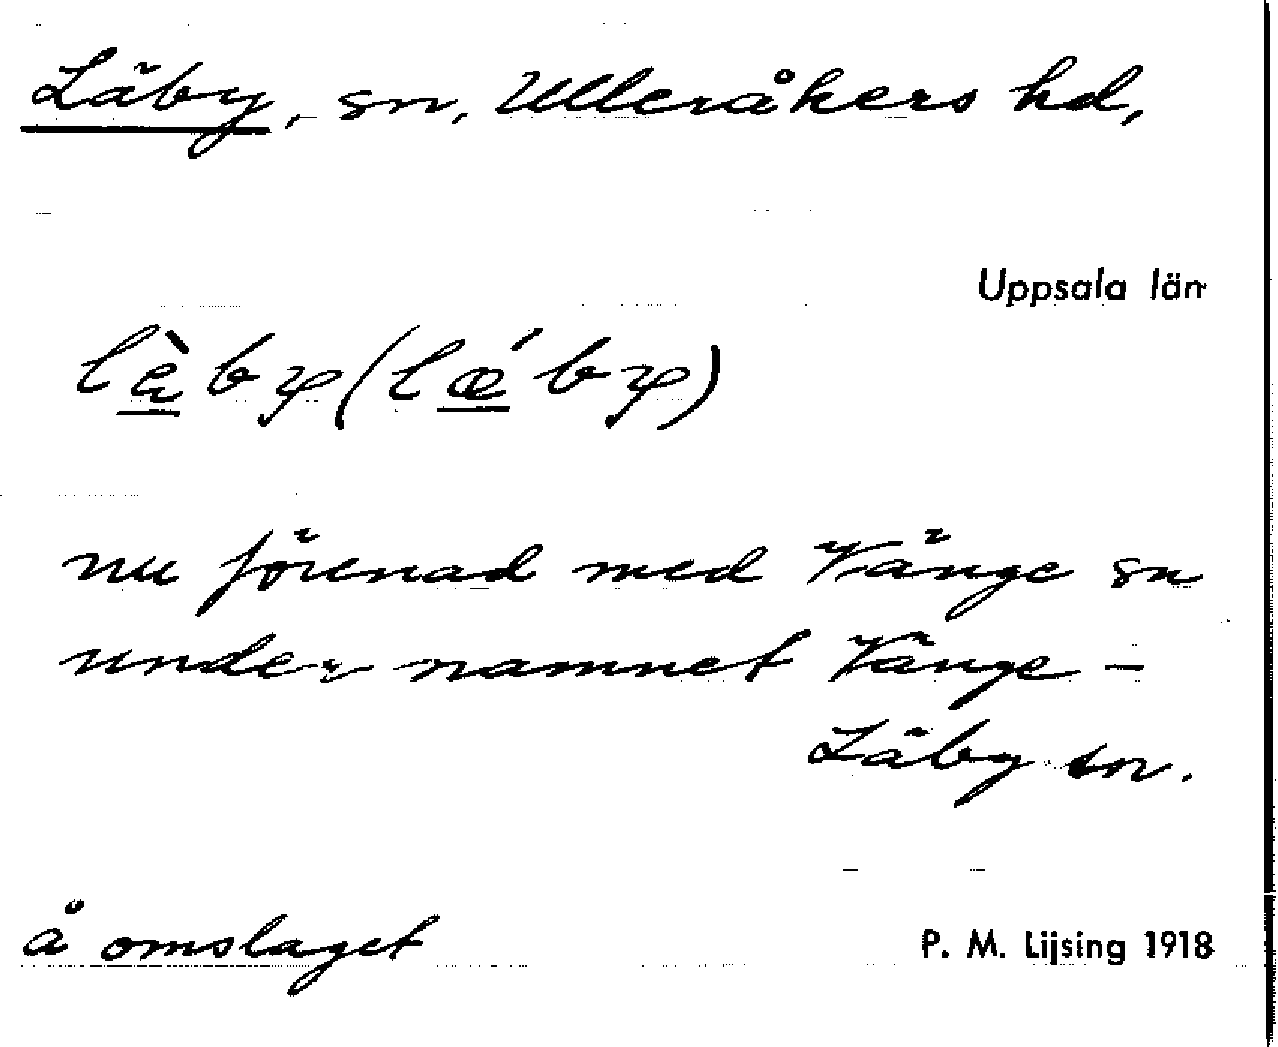 Läby, sn, Ulleråkers hd,
Uppsala län
lèby (lǽby)
nu förenad med Vänge sn
under namnet Vänge-
Läby sn.
å omslaget
P. M. Lijsing 1918